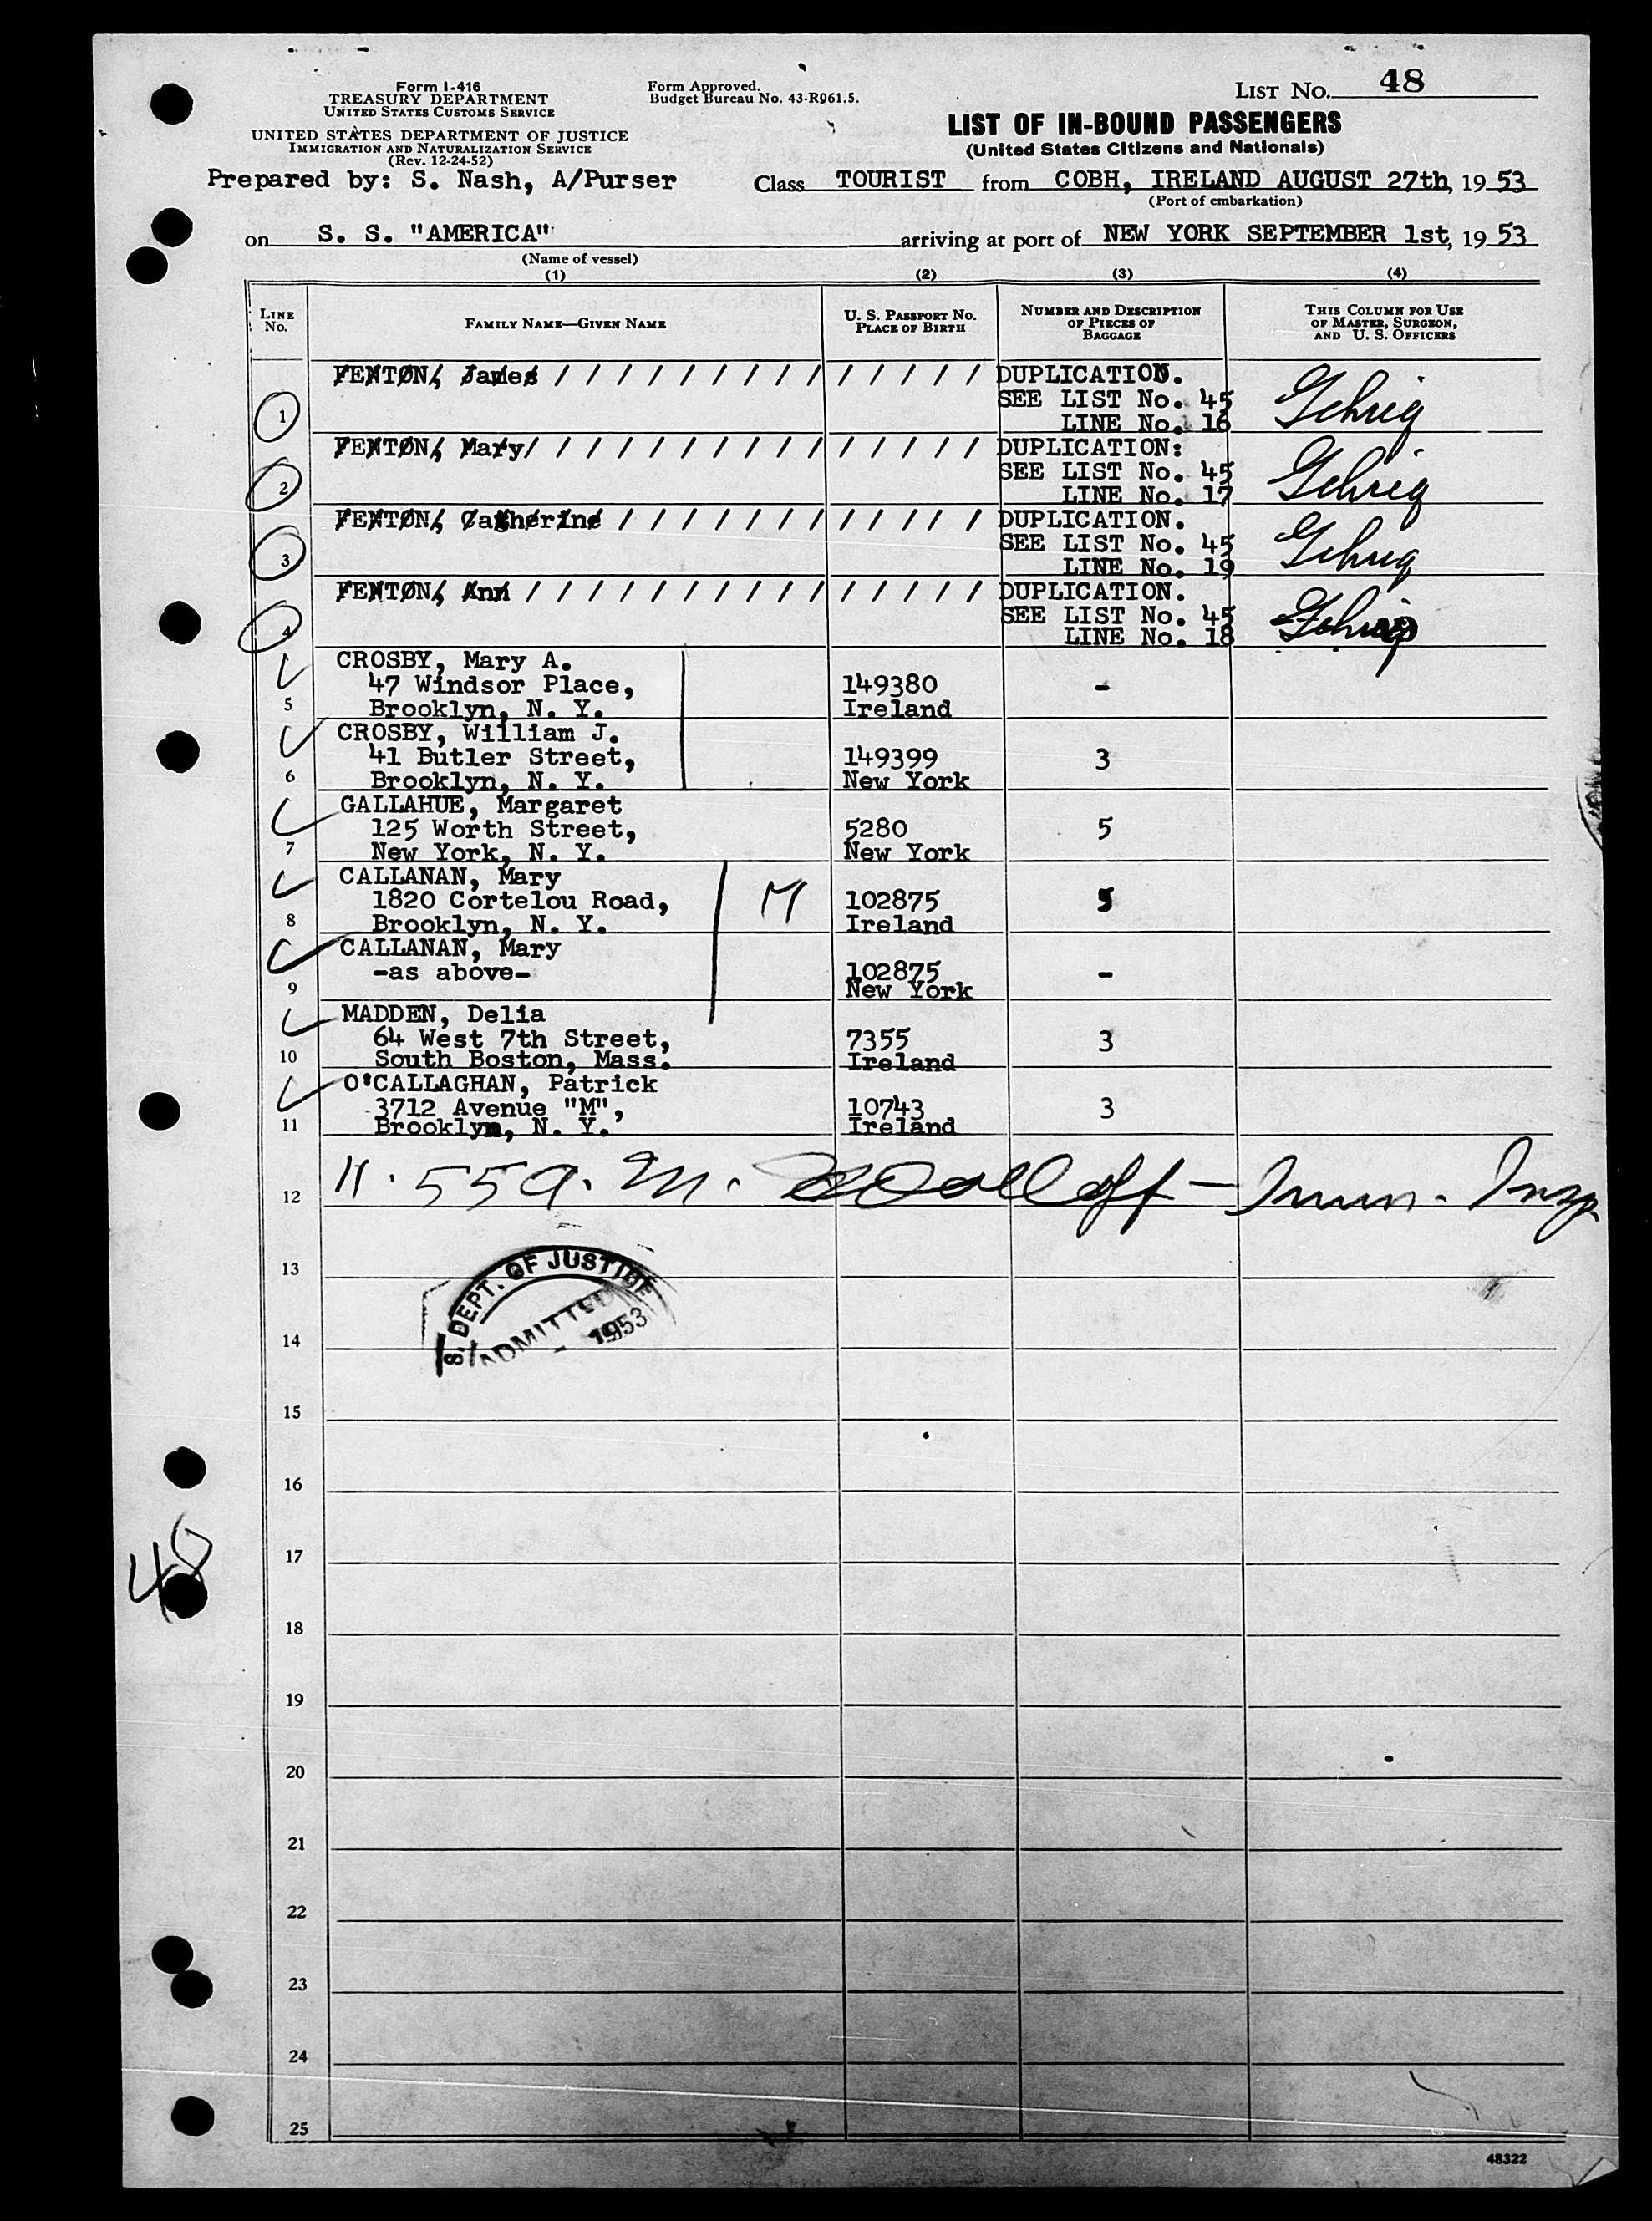 Form I-416
TREASURY DEPARTMENT
UNITED STATES CUSTOMS SERVICE
UNITED STATES DEPARTMENT OF JUSTICE
IMMIGRATION AND NATURALIZATION SERVICE
(Rev. 12-24-52)
Form Approved.
Budget Bureau No. 43-R061.5.
LIST NO. 48
LIST OF IN-BOUND PASSENGERS
(United States Citizens and Nationals)
Prepared by: S. Nash, A/Purser
Class TOURIST from COBH, IRELAND AUGUST 27th, 19 53
(Port of embarkation)
on S. S. "AMERICA" arriving at port of NEW YORK SEPTEMBER 1st, 19 53
(Name of vessel)
(1) (2) (3) (4)
LINE No.
FAMILY NAME—GIVEN NAME
U. S. PASSPORT NO.
PLACE OF BIRTH
NUMBER AND DESCRIPTION
OF PIECES OF
BAGGAGE
THIS COLUMN FOR USE
OF MASTER, SURGEON,
AND U. S. OFFICERS
FENTON, James / / / / / / / / / / / / / / DUPLICATION.
SEE LIST No. 45 Gehrig
1 LINE No. 16
FENTON, Mary / / / / / / / / / / / / / / / DUPLICATION:
SEE LIST No. 45 Gehrig
2 LINE No. 17
FENTON, Catherine / / / / / / / / / / / / DUPLICATION.
SEE LIST No. 45 Gehrig
3 LINE No. 19
FENTON, Ann / / / / / / / / / / / / / / / DUPLICATION.
SEE LIST No. 45 Gehrig
4 LINE No. 18
CROSBY, Mary A.
47 Windsor Place, 149380 -
5 Brooklyn, N. Y. Ireland
CROSBY, William J.
41 Butler Street, 149399 3
6 Brooklyn, N. Y. New York
GALLAHUE, Margaret
125 Worth Street, 5280 5
7 New York, N. Y. New York
CALLANAN, Mary
1820 Cortelou Road, M 102875 5
8 Brooklyn, N. Y. Ireland
CALLANAN, Mary
-as above- 102875 -
9 New York
MADDEN, Delia
64 West 7th Street, 7355 3
10 South Boston, Mass. Ireland
O'CALLAGHAN, Patrick
3712 Avenue "M", 10743 3
11 Brooklyn, N. Y. Ireland
12 11.55 a.m. — Imm. Insp
13
S. DEPT. OF JUSTICE
ADMITTED
1953
14
15
16
17
48
18
19
20
21
22
23
24
25
48322